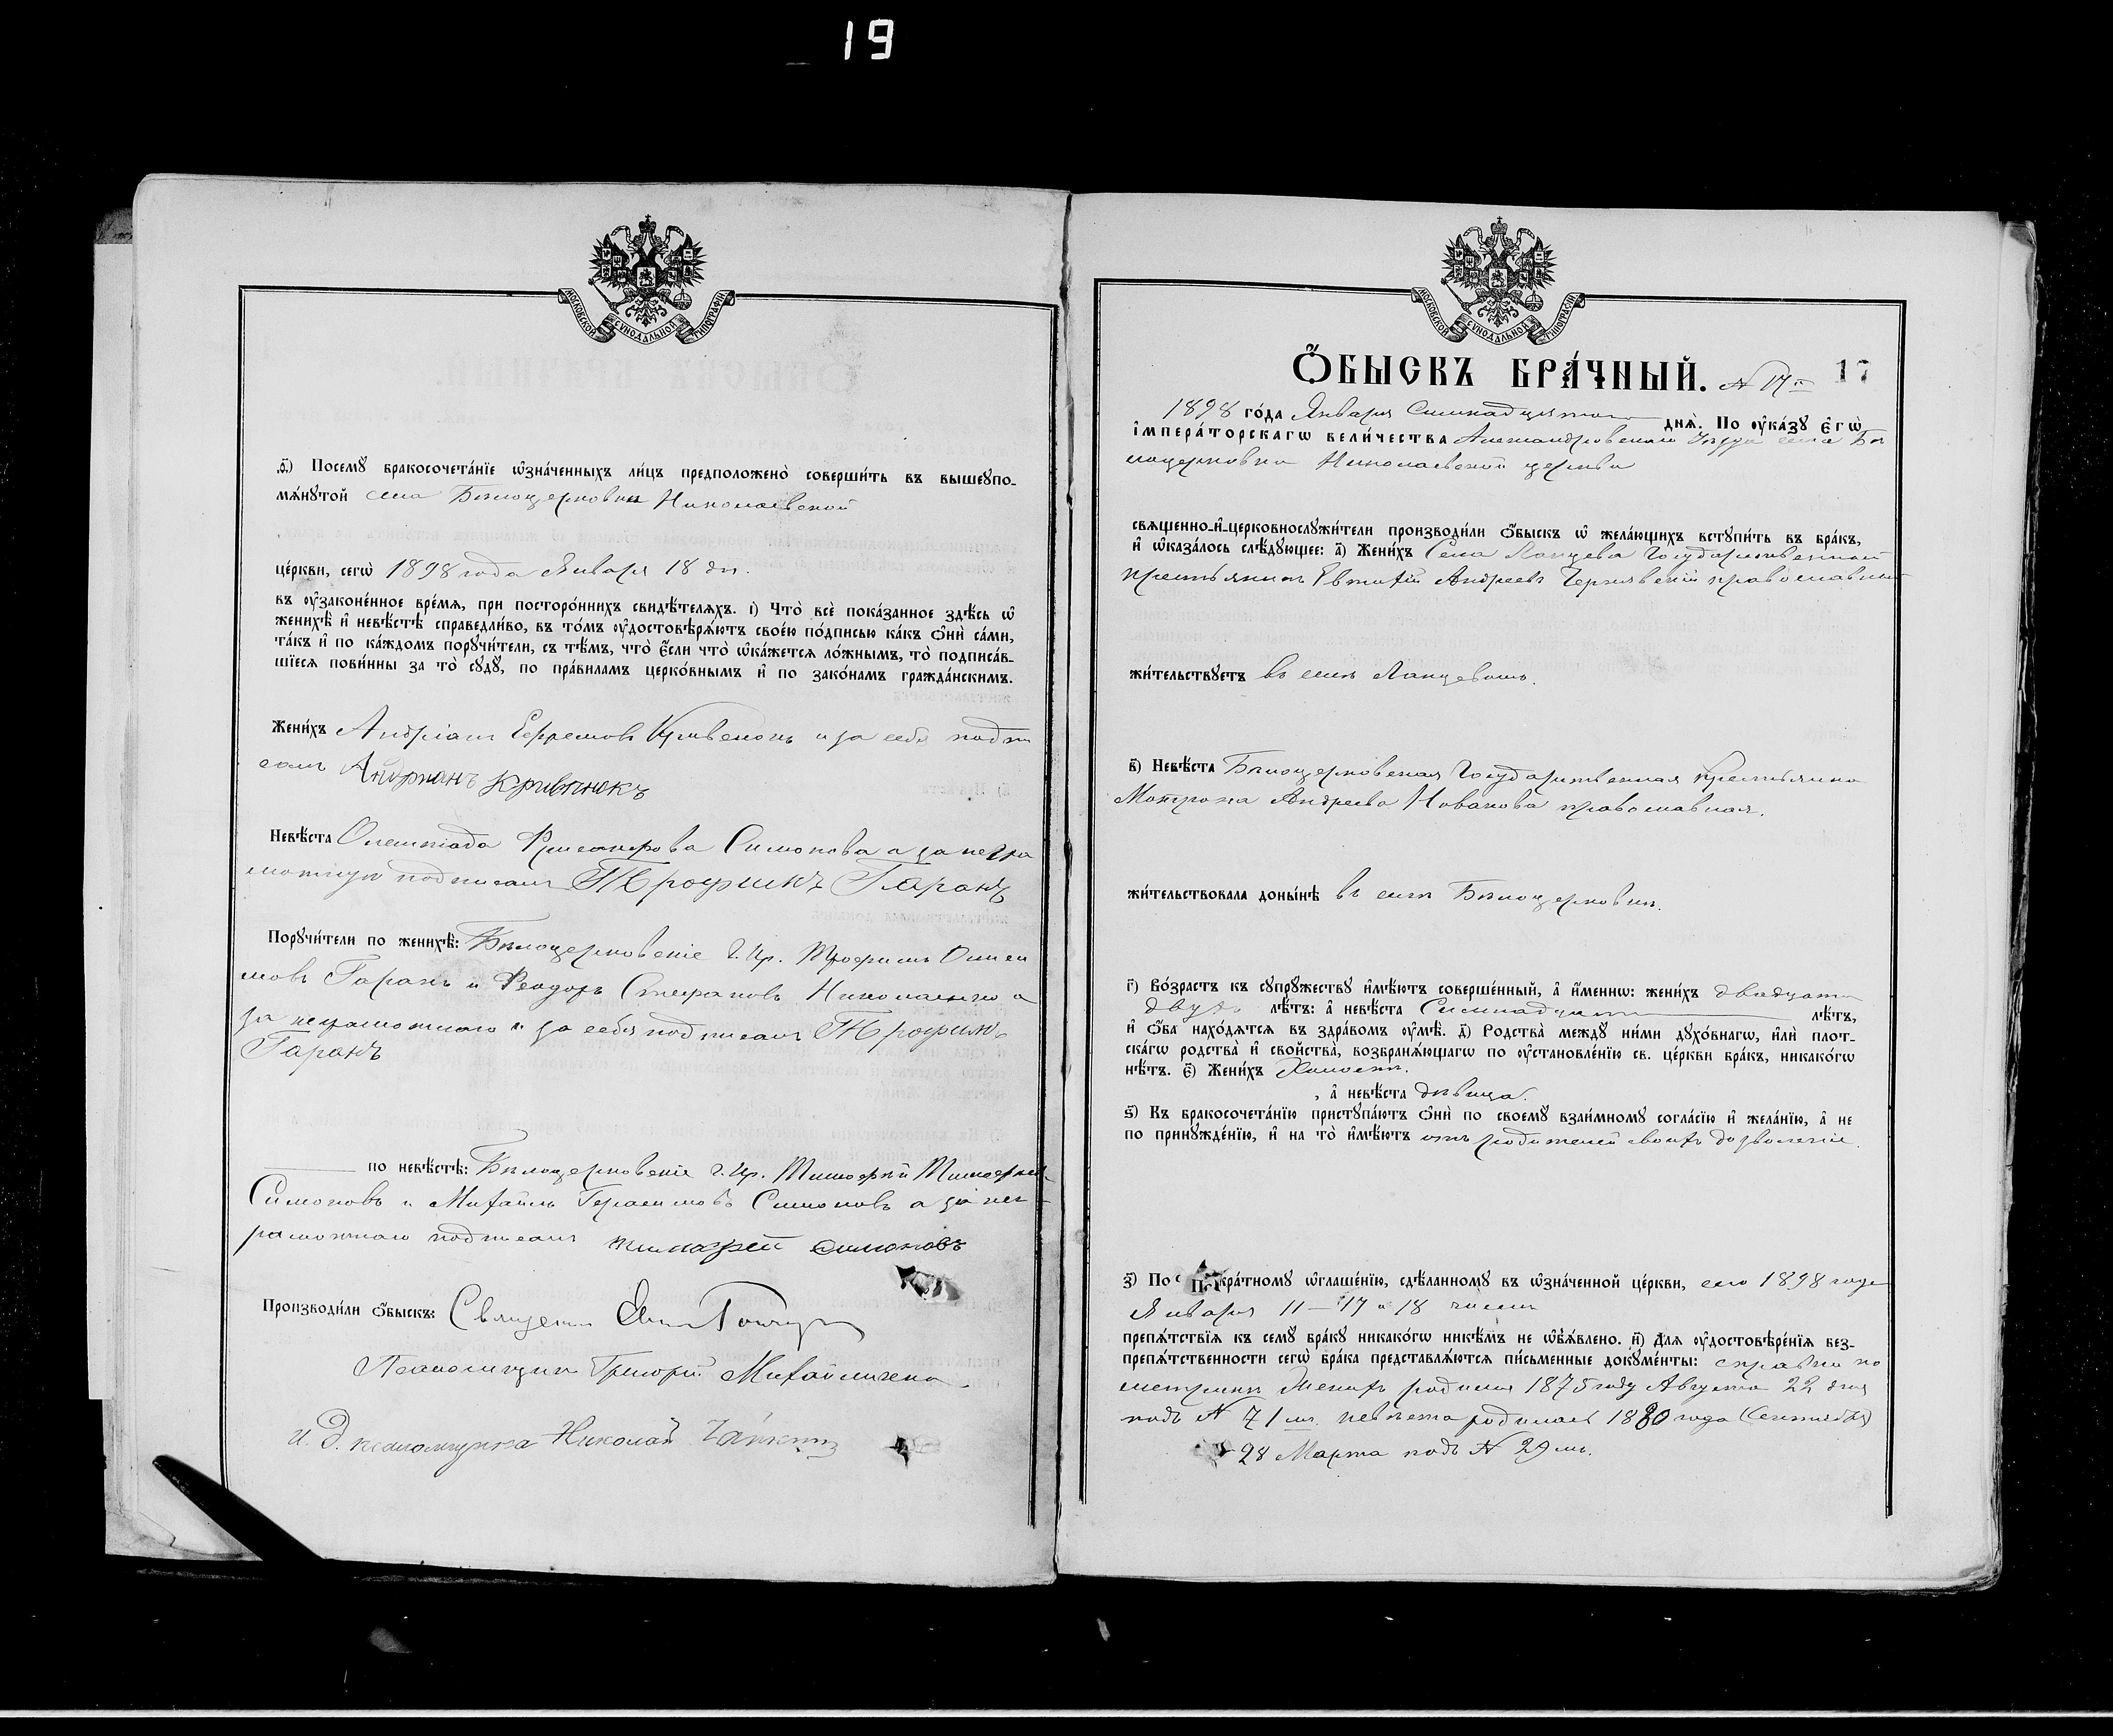 19
МОСКОВСКОЙ СѴНОДАЛЬНОЙ ТИПОГРАФІИ.
.ѳ҃) Посемꙋ̀ бракосочета́нїе ѡ҆зна́ченныхъ ли́цъ предположено̀ соверши́ть въ вышеꙋпо-
мѧ́нꙋтой села Бѣлоцерковки Николаевской
це́ркви, сегѡ̀ 1898 года Января 18 дн.
въ ᲂу҆зако́ненное вре́мѧ, при посторо́ннихъ свидѣ́телѧхъ. і҃) Что̀ всѐ пока́занное здѣ́сь ѡ҆
женихѣ̀ и҆ невѣ́стѣ справедли́во, въ то́мъ ᲂу҆достовѣрѧ́ютъ свое́ю по́дписью ка́къ ѻ҆нѝ са́ми,
та́къ и҆ по ка́ждомъ порꙋчи́тели, съ тѣ́мъ, что̀ є҆́сли что̀ ѡ҆ка́жетсѧ ло́жнымъ, то̀ подписа́в-
шїесѧ пови́нны за то̀ сꙋдꙋ̀, по пра́виламъ церко́внымъ и҆ по зако́намъ гражда́нскимъ.
Жени́хъ Андріанъ Ефремовъ Кривенокъ и за себя подпи
салъ Андрианъ Кривѣнокъ
Невѣ́ста Олимпіада Симонова а за негра
мотную подписалъ Трофимъ Гаранъ
Порꙋчи́тели по женихѣ̀: Бѣлоцерковскіе г. кр. Трофимъ
Гаранъ и Феодоръ Стефановъ Николаенко а
за неграмотнаго и за себя подписалъ Трофимъ
Гаранъ
по невѣ́стѣ: Бѣлоцерковскіе г. кр. Тимофѣй Тимофѣев
Симоновъ и Михаилъ Герасимовъ Симоновъ а за нег
рамотнаго подписалъ Тимофей Симоновъ
Производи́ли ѻ҆́быскъ: Священникъ
Псаломщикъ Григорій Михайличенко
и. д. псаломщика Николай
МОСКОВСКОЙ СѴНОДАЛЬНОЙ ТИПОГРАФІИ.
Ѻ҆́БЫСКЪ БРА́ЧНЫЙ. № 17й 17
1898 го́да Января Семнадцатого днѧ̀. По ᲂу҆ка́зꙋ є҆гѡ̀
і҆мпера́торскагѡ вели́чества Александровскаго Уѣзда села Бѣ
лоцерковки Николаевской церкви
свѧще́нно-и҆-церковнослꙋжи́тели производи́ли ѻ҆́быскъ ѡ҆ жела́ющихъ встꙋпи́ть въ бра́къ,
и҆ ѡ҆каза́лось слѣ́дꙋющее: а҃) Жени́хъ Села Ланцева Государственный
крестьянинъ Евтихій Андреевъ Чернявскій православный
жи́тельствꙋетъ въ селѣ Ланцевомъ.
в҃) Невѣ́ста Бѣлоцерковская Государственная крестьянка
Матрона Андреева Новакова православная.
жи́тельствовала доны́нѣ въ селѣ Бѣлоцерковкѣ.
г҃) Во́зрастъ къ сꙋпрꙋ́жествꙋ и҆мѣ́ютъ соверше́нный, а҆ и҆́меннѡ: жени́хъ двадцати
двухъ лѣ́тъ: а҆ невѣ́ста Семнадцати лѣ́тъ,
и҆ ѻ҆́ба нахо́дѧтсѧ въ здра́вомъ ᲂу҆мѣ̀. д҃) Родства̀ междꙋ̀ ни́ми дꙋхо́внагѡ, и҆лѝ плот-
ска́гѡ родства̀ и҆ сво́йства̀, возбранѧ́ющагѡ по ᲂу҆становле́нїю св. це́ркви бра́къ, никако́гѡ
нѣ́тъ. є҃) Жени́хъ Холостъ.
, а҆ невѣ́ста дѣвица.
ѕ҃) Къ бракосочета́нїю пристꙋпа́ютъ ѻ҆нѝ по своемꙋ̀ взаи́мномꙋ согла́сїю и҆ жела́нїю, а҆ не
по принꙋжде́нїю, и҆ на то̀ и҆мѣ́ютъ отъ родителей своихъ дозволеніе.
з҃) По кра́тномꙋ ѡ҆глаше́нїю, сдѣ́ланномꙋ въ ѡ҆зна́ченной це́ркви, сего 1898 года
Января 11 — 17 и 18 числъ
препѧ́тствїѧ къ семꙋ̀ бра́кꙋ никако́гѡ никѣ́мъ не ѡ҆б̾ѧ́влено. и҃) Длѧ ᲂу҆достовѣре́нїѧ без-
препѧ́тственности сегѡ̀ бра́ка представлѧ́ютсѧ пи́сьменные докꙋме́нты: справки по
метрикѣ Женихъ родился 1875 году Августа 22 дня
подъ № 71 м. невѣста родилась 1880 года (Сентября)
28 Марта подъ № 29 м.